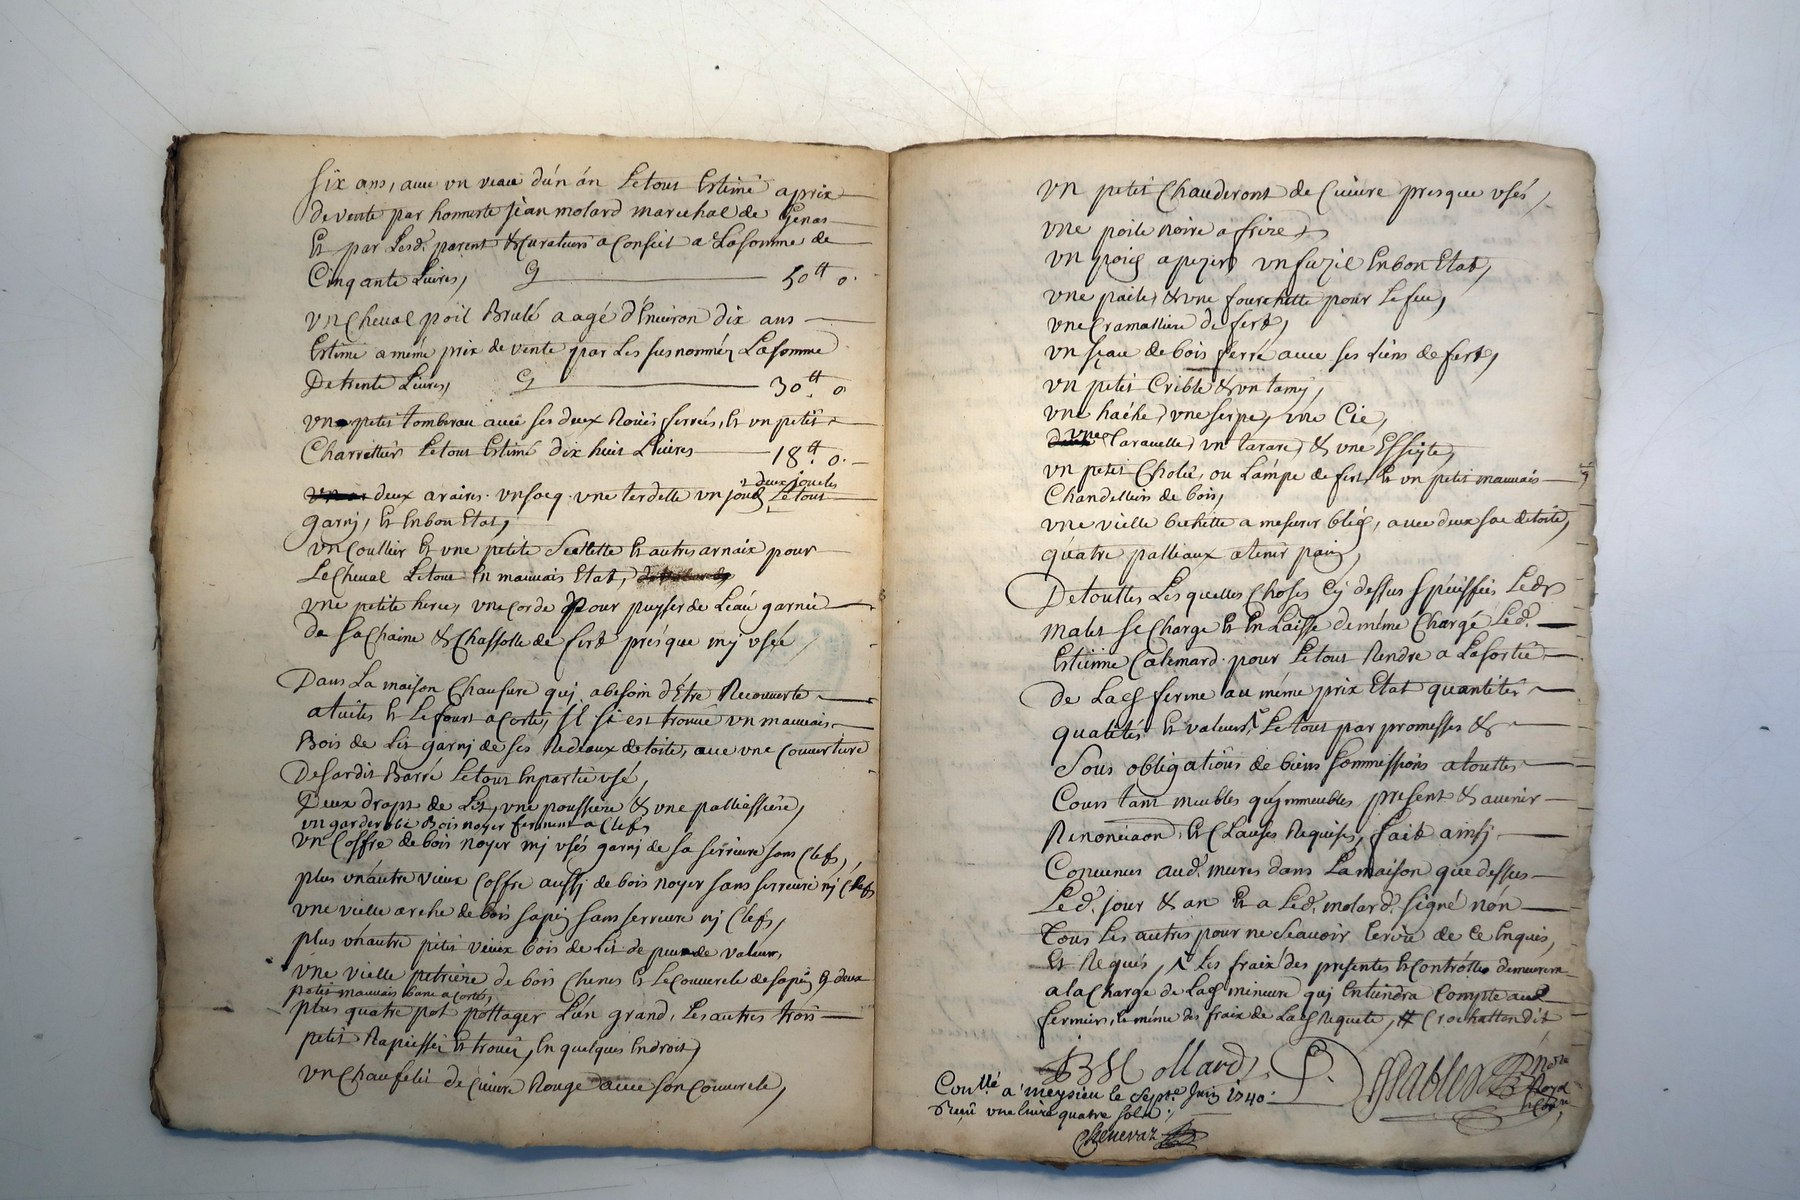 six ans, avec un veau d'un an Le tout Estimé a prix
de vente par honneste jean molard marechal de Genas
Et par Lesd. parent & curateurs a Conseil a La somme de
Cinquante Livres, Cy 50 tt 0.
un Cheval poil Brulé aagé d'Environ dix ans
Estimé a méme prix de vente par Les susnommés La somme
De trente Livres, Cy 30 tt 0
un petit tombereau avec ses deux Roües ferrées, Et un petit
Charrettier Le tout Estimé dix huit Livres 18 tt 0.
& deux jouclés
deux araires. un soeq. une terdelle un joug Le tout
garnj, Et En bon Etat,
un Coullier Et une petite Sellette Et autres arnaix pour
Le Cheval Le tout En mauvais Etat,
une petite herce, une Corde pour puyser de Leau garnie
de sa Chaine & Chassolle de ferd présque mj usée
Dans La maison Chaufure quj a besoin d'Étre Recouverte
a tuiles Et Le fourt a Corté, jl si est trouvé un mauvais
Bois de Lit garnj de ses Redeaux de toile, avec une Couverture
De sardis Barré Le tout En partie usé,
Deux draps de Lit, une poussiere & une palliassiere,
un garderobe Bois noyer fermant a Clefs
un Coffre de bois noyer mj usés garnj de sa serrure sans Clefs,
plus un autre vieux Coffre aussj de bois noyer sans serrure nj Clefs
une vielle arche de bois sapin sans serrure nj Clefs,
plus un autre petit vieux bois de Lit de peu de valeur,
une vielle petriere de bois Chenes Et Le Couvercle de sapin & deux
petit mauvais banc a Corté,
plus quatre pot pottager L'un grand, Les autres trois
petit Rapiessés Et troués, En quelques Endroit,
un Chaufelit de Cuivre Rouge avec son Couvercle,
un petit Chauderont de Cuivre presque usés,
une poile noire a frire,
un poid a pezer, un fuzil En bon Etat,
une paile, & une fourchette pour Le feu,
une Cramalliere de ferd,
un seau de bois ferré avec ses Liens de ferd,
un petit Crible & un tamj,
une hache, une serpe, une Cie,
une taravelle, un tarare, & une Essiyte,
un petit Chole, ou Lampe de ferd, Et un petit mauvais
Chandellier de bois,
une vielle bichette a mesurer bled, avec deux sac de toile,
quatre palliaux a tenir pain,
De touttes Les quelles Choses Cy dessus spéciffiées Led.
malet se Charge Et En Laisse de méme Chargé Led.
Estienne Calemard. pour Le tout Rendre a La sortie
de Lad. ferme au méme prix Etat quantités
qualités Et valeurs, Le tout par promesses &
Sous obligations de biens sommissions a touttes
Cours tant meubles qu'jmmeubles present & avenir
Renonciaon, Et Clauses Requises, fait ainsj
Convenus aud. mures dans La maison que dessus
Led. jour & an Et a Led. molard. signé nón
tous Les autres pour ne Scavoir Ecrire de Ce Enquis,
Et Requis, Les fraix des presentes & Controlles demeurera
a la Charge de Lad. mineure quj Entiendra Compte aud.
fermier, Et méme des fraix de Lad. Requete,
JB Mollard
Conllé a meysieu le sept.e Juin 1740.
Reçu une livre quatre sols.
Chenevaz